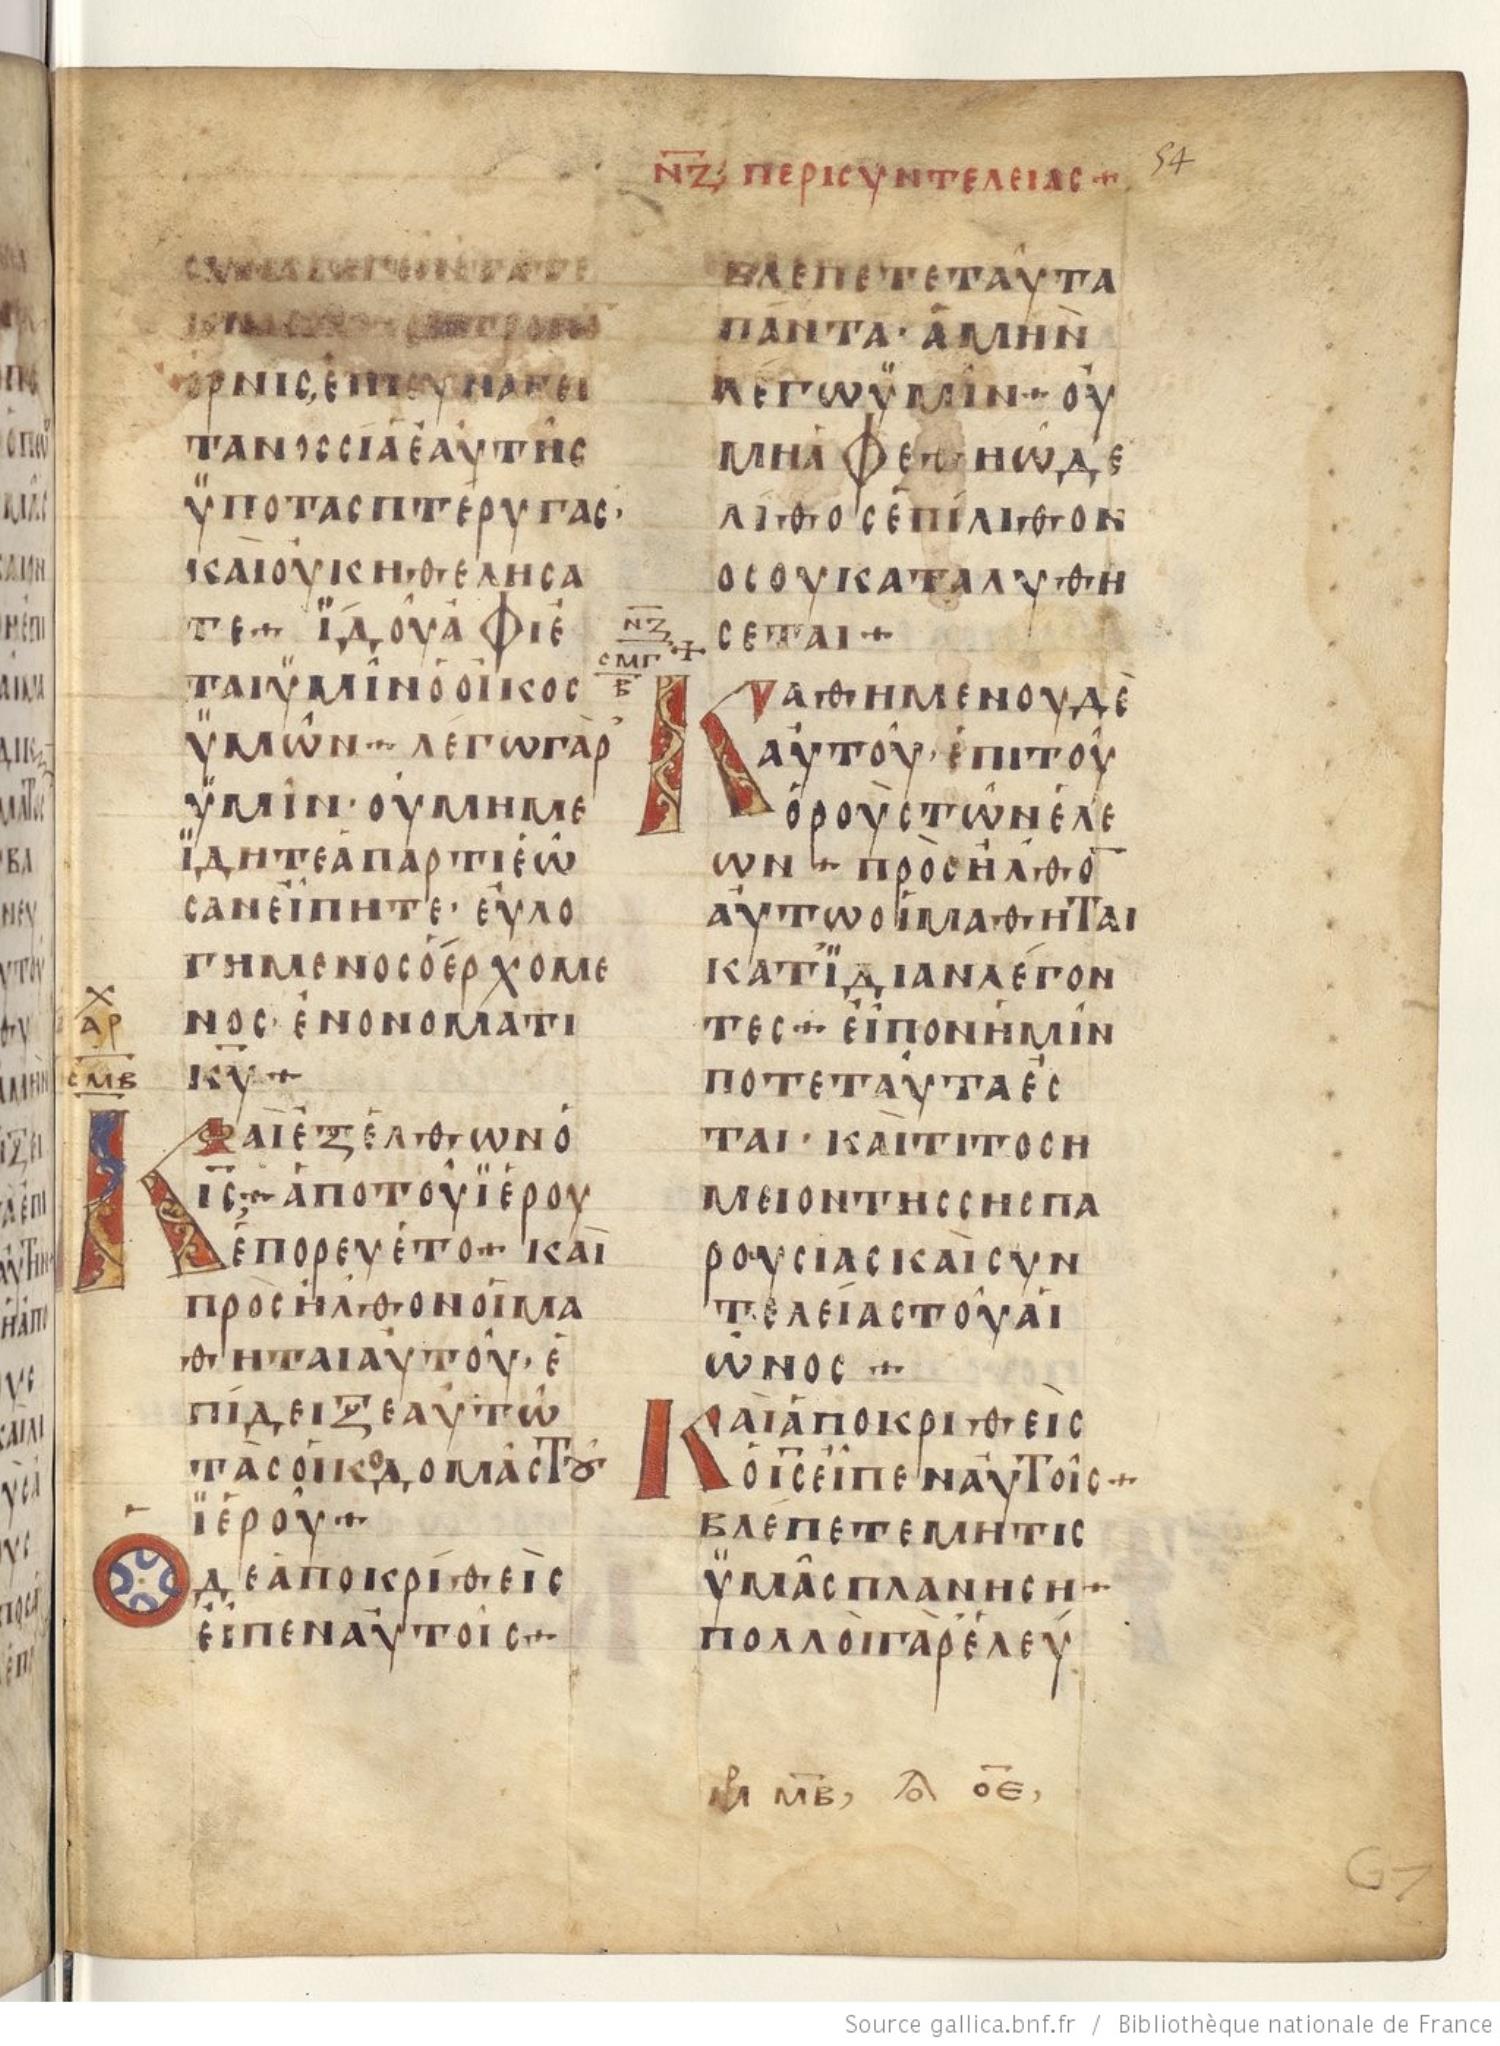 Ν̅Ζ̅ ΠΕΡΙ CΥΝΤΕΛΕΙΑC +
54
ΟΡΝΙC, ἘΠΙCΥΝΑΓΕΙ
ΤΑ ΝΟCCΙᾺ ἙΑΥΤΗ͂C
ΫΠΟ ΤΑC ΠΤΈΡΥΓΑC·
ΚΑῚ ΟΥ̓Κ ΗΘΕΛΗCΑ
ΤΕ + ΪΔΟῪ ἈΦΙΕ
ΤΑΙ ΫΜΙ͂Ν Ὁ ΟἾΚΟC
ΫΜΩ͂Ν + ΛΕΓΩ ΓᾺΡ
ΫΜΙΝ· ΟΥ̓ ΜΗ ΜΕ
ΪΔΗΤΕ ἈΠΑΡΤΙ ἙΩ
CΑΝ ΕἸΠΗΤΕ· ΕΥ̓ΛΟ
ΓΗΜΕΝΟC Ὁ ἘΡΧΟΜΕ
ΝΟC· ἘΝ ΟΝΟΜΑΤΙ
Κ̅Υ̅ +
Χ
ΑΡ
CΜΒ
ΚΑῚ ἘΞΕΛΘΩΝ Ὁ
Ι̅C̅ + ἈΠΟ ΤΟΥ͂ ΪΕΡΟΥ
ἘΠΟΡΕΥΕΤΟ + ΚΑῚ
ΠΡΟCΗΛΘΟΝ ΟἹ ΜΑ
ΘΗΤΑΙ ΑΥ̓ΤΟΥ͂, Ἐ
ΠΙΔΕΙΞΕ ΑΥ̓ΤΩ͂
ΤᾺC ΟἸΚΟΔΟΜᾺC ΤΟΥ͂
ΪΕΡΟΥ͂ +
Ο ΔΕ ἈΠΟΚΡΙΘΕῚC
ΕἾΠΕΝ ΑΥ̓ΤΟΙ͂C +
ΒΛΕΠΕΤΕ ΤΑΥ͂ΤΑ
ΠΑΝΤΑ· ἈΜΗΝ
ΛΕΓΩ ΫΜΙΝ + ΟΥ̓
ΜΗ ἈΦΕΘΗ ΩΔΕ
ΛΙΘΟC ἘΠΙ ΛΙΘΟΝ
ΟC ΟΥ ΚΑΤΑΛΥΘΗ
CΕΤΑΙ +
Ν̅Ζ̅
CΜΓ +
Β
ΚΑΘΗΜΕΝΟΥ ΔῈ
ΑΥ̓ΤΟΥ͂, ἘΠΙ ΤΟΥ͂
ὈΡΟΥC ΤΩ͂Ν ἘΛΕ
ΩΝ + ΠΡΟCΗΛΘΟ̅
ΑΥ̓ΤΩ ΟἹ ΜΑΘΗΤΑΙ
ΚΑΤ ΪΔΙΑΝ ΛΕΓΟΝ
ΤΕC + ΕἸΠΟΝ ἩΜΙΝ
ΠΟΤΕ ΤΑΥΤΑ ἘC
ΤΑΙ· ΚΑῚ ΤΙ ΤΟ CΗ
ΜΕΙΟΝ ΤΗC CΗC ΠΑ
ΡΟΥCΙΑC ΚΑῚ CΥΝ
ΤΕΛΕΊΑC ΤΟΥ͂ ΑἸ
ΩΝΟC +
ΚΑῚ ἈΠΟΚΡΙΘΕῚC
Ὁ Ι̅C̅ ΕἾΠΕΝ ΑΥ̓ΤΟΙ͂C +
ΒΛΕΠΕΤΕ ΜΗ ΤΙC
ΫΜᾶC ΠΛΑΝΗCΗ +
ΠΟΛΛΟῚ ΓᾺΡ ἘΛΕΥ
Μ̅Β̅, Ο̅Ε̅,
G7
Source gallica.bnf.fr / Bibliothèque nationale de France